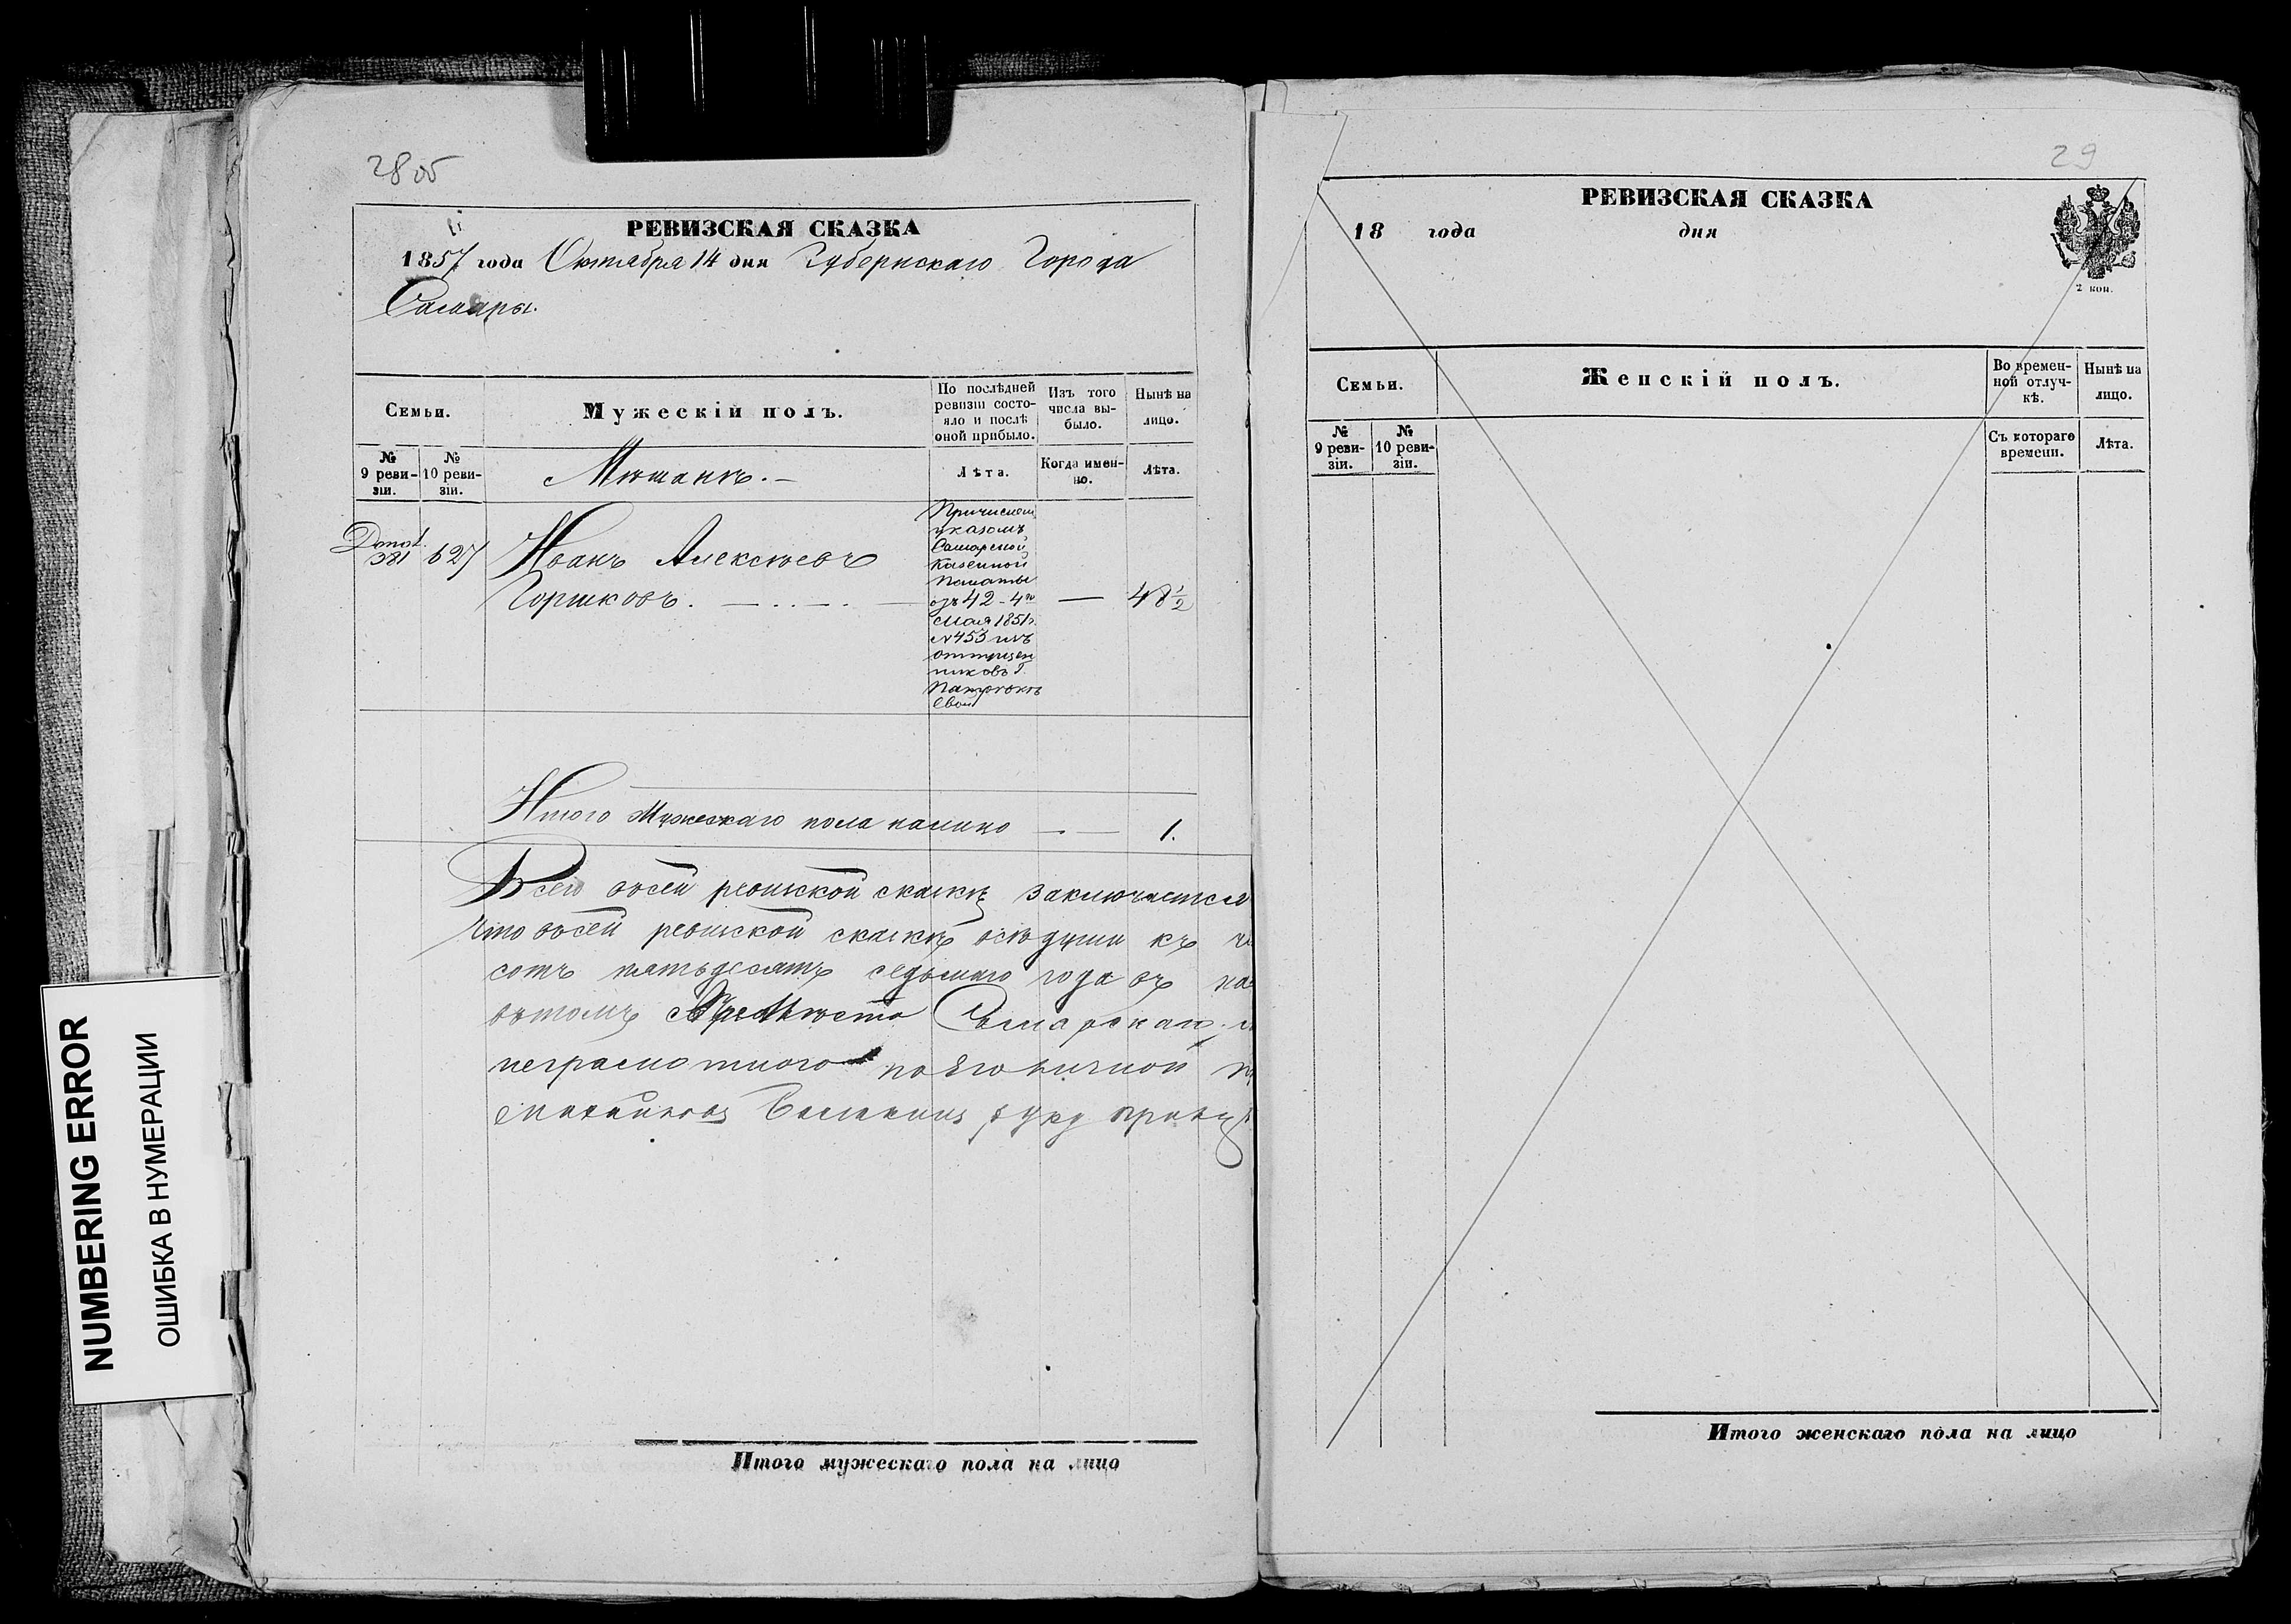 28 об
РЕВИЗСКАЯ СКАЗКА
1857 года Октября 14 дня Губернскаго Города
Самары.
Семьи.
Мужескій полъ.
По послѣдней ревизіи состояло и послѣ оной прибыло.
Изъ того числа выбыло.
Нынѣ на лицо.
№ 9 ревизіи.
№ 10 ревизіи.
Мѣщанъ.
Лѣта.
Когда именно.
Лѣта.
381
627
Иванъ Алексѣевъ
Горшковъ.
Причислен
указомъ
Самарской
Казенной
Палаты
42 - 4го
мая 1851г.
№453 изъ
отпущен
никовъ Г.
48 1/2
Итого Мужескаго пола налицо 1.
Всего въ сей ревизской сказкѣ заключается
что въ сей ревизской сказкѣ всѣ души къ
сотъ пятьдесятъ седьмаго года въ
въ томъ Самарскаго
неграмотнаго по Его личной
руку
Итого мужескаго пола на лицо
29
РЕВИЗСКАЯ СКАЗКА
18 года дня
2 коп.
Семьи.
Женскій полъ.
Во временной отлучкѣ.
Нынѣ на лицо.
№ 9 ревизіи.
№ 10 ревизіи.
Съ котораго времени.
Лѣта.
Итого женскаго пола на лицо
NUMBERING ERROR
ОШИБКА В НУМЕРАЦИИ